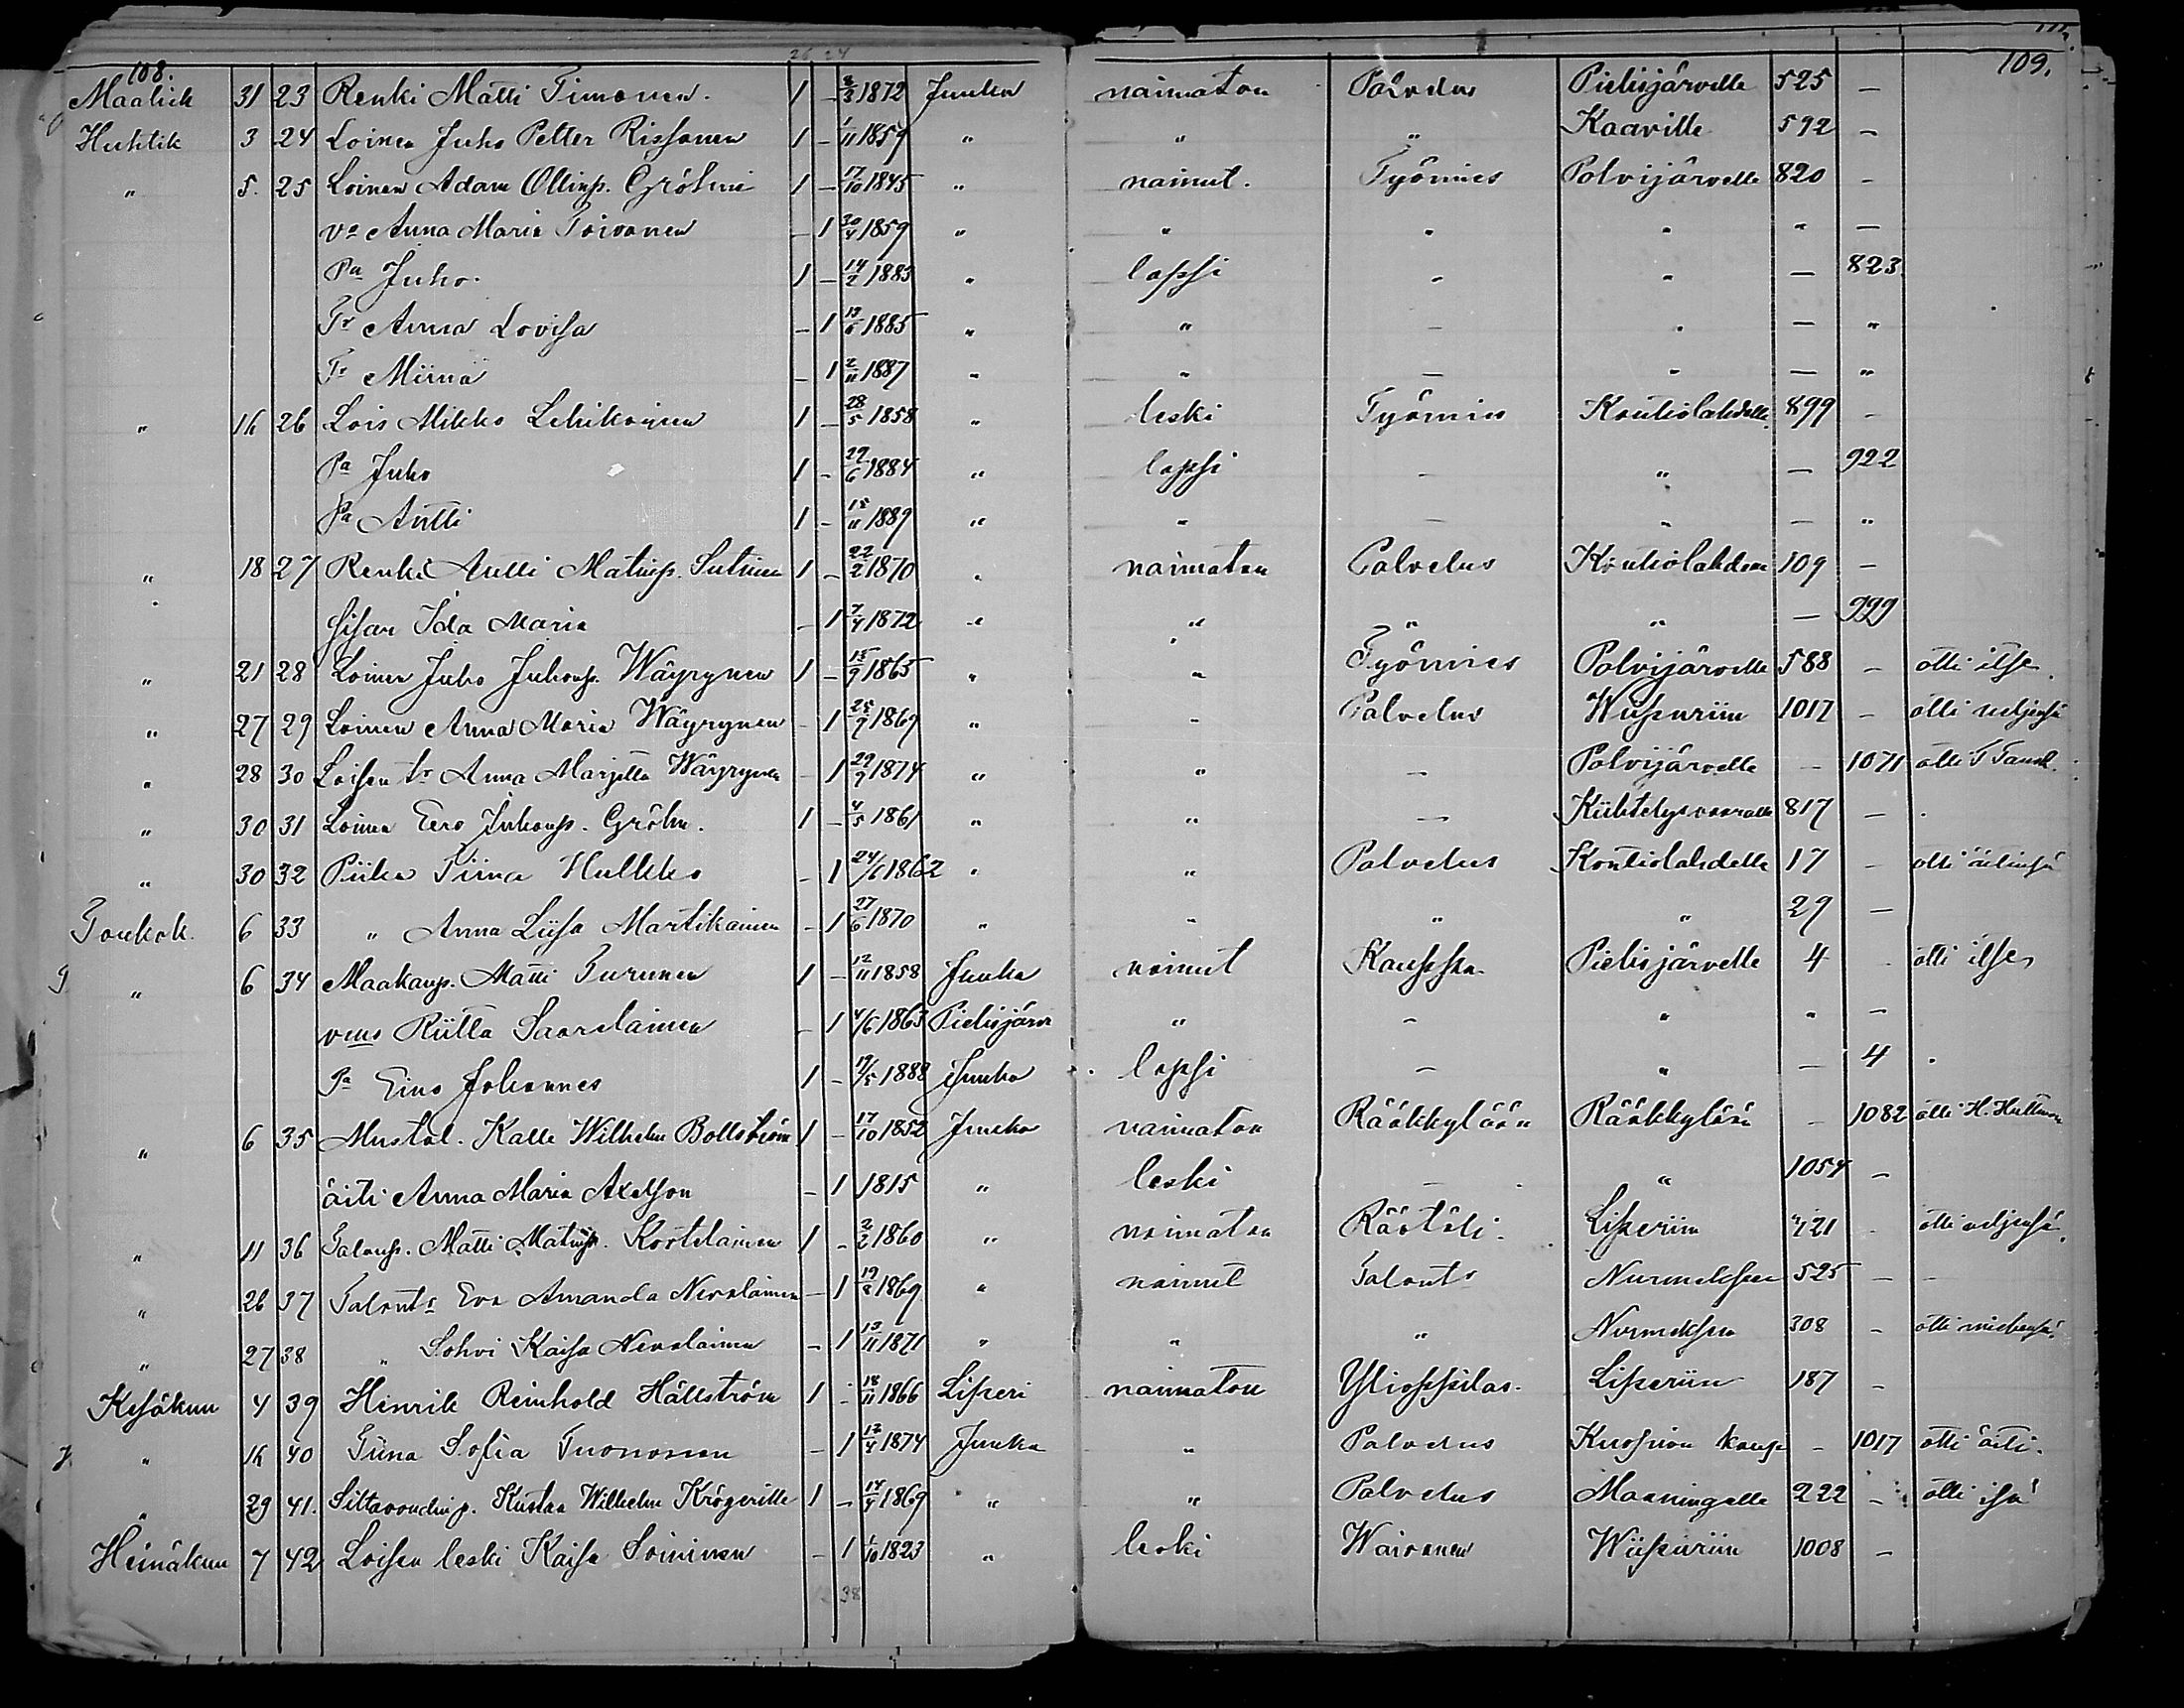 108. 109.
Maalisk 31 23 Renki Matti Timonen. 1 – 8/3 1872 Juuka naimaton Palvelus Pielisjärvelle 525 –
Huhtik 3 24 Loinen Juho Petter Rissanen 1 – 1/11 1859 " " " Kaaville 592 –
" 5. 25 Loinen Adam Ollinp. Gröhni 1 – 17/10 1845 " nainut. Työmies Polvijärvelle 820 –
vo Anna Maria Toivanen – 1 20/4 1859 " " " " " –
Pa Juho. 1 – 14/2 1883 " lapsi – " – 823
Tr Anna Lovisa – 1 13/6 1885 " " – " – "
Tr Miina – 1 2/11 1887 " " – " – "
" 16 26 Lois Mikko Lehikoinen 1 – 28/5 1858 " leski Työmies Kontiolahdelle 899 –
Pa Juho 1 – 29/6 1884 " lapsi – " – 922
Pa Antti 1 – 15/11 1889 " " – " – "
" 18 27 Renki Antti Matinp. Sutinen 1 – 22/2 1870 " naimaton Palvelus Kontiolahdelle 109 –
sisar Ida Maria – 1 7/4 1872 " " " " – 999
" 21 28 Loinen Juho Juhonp. Wäyrynen 1 – 15/9 1865 " " Työmies Polvijärvelle 588 – otti itse.
" 27 29 Loinen Anna Maria Wäyrynen – 1 25/7 1869 " " Palvelus Wiipuriin 1017 – otti veljensä
" 28 30 Loisen tr Anna Marjetta Wäyrynen – 1 29/9 1874 " " – Polvijärvelle – 1071 otti T
" 30 31 Loinen Eero Juhonp. Gröhn. 1 – 4/5 1861 " " – Kiihtelysvaaralle 817 –
" 30 32 Piika Tiina Hulkko – 1 24/6 1862 " " Palvelus Kontiolahdelle 17 – otti äitinsä
Toukok. 6 33 " Anna Liisa Martikainen – 1 27/6 1870 " " " " 29 –
" 6 34 Maakaup. Matti Turunen 1 – 12/11 1858 Juuka nainut Kauppa Pielisjärvelle 4 – otti itse
vmo Riitta Saarelainen – 1 4/6 1863 Pielisjärvi " – " " –
Pa Eino Johannes 1 – 19/5 1888 Juuka lapsi – " – 4
" 6 35 Mustal. Kalle Wilhelm Bollström 1 – 17/10 1852 Juuka naimaton Rääkkylään Rääkkylään – 1082 otti H.
äiti Anna Maria Axelson – 1 1815 " leski – " 1054 –
" 11 36 Talonp. Matti Matinp. Kortelainen 1 – 2/2 1860 " naimaton Räätäli. Liperiin 421 – otti veljensä.
" 26 37 Talontr Eva Amanda Nevalainen – 1 19/8 1869 " nainut Talontr Nurmeksen 525 – –
" 27 38 " Sohvi Kaisa Nevalainen – 1 13/11 1871 " " " Nurmeksen 308 – otti miehensä.
Kesäkuu 4 39 Henrik Reinhold Hällström 1 – 18/11 1866 Liperi naimaton Ylioppilas. Liperiin 187 –
" 16 40 Tiina Sofia Tuononen – 1 12/4 1874 Juuka " Palvelus Kuopion kaup – 1017 otti äiti.
" 29 41. Siltavoudinp. Kustaa Wilhelm Krögerille 1 – 14/4 1869 " " Palvelus Maaningalle 222 – otti isä
Heinäkuu 7 42 Loisen leski Kaisa Soininen – 1 1/10 1823 " leski Waivanen Wiipuriin 1008 –
38